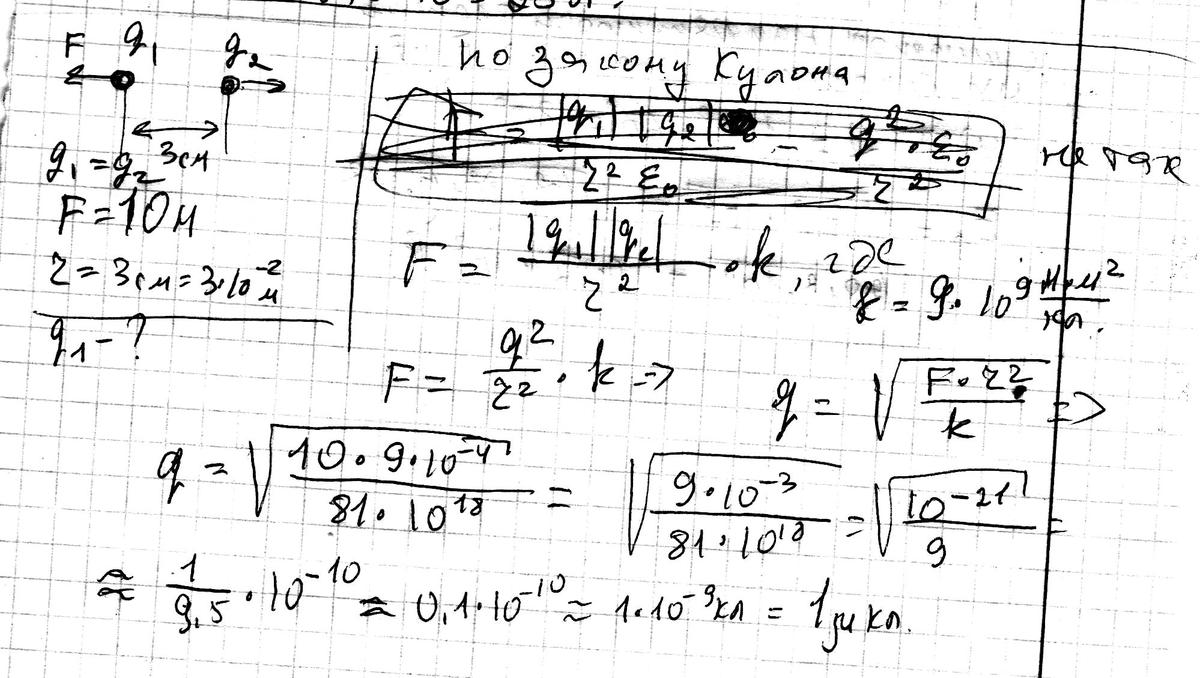 F q₁ q₂
3см
q₁ = q₂
F = 10 н
r = 3 см = 3·10⁻² м
q₁ - ?
по закону Кулона
|q₁| |q₂| q² · ε₀
r² ε₀ r²
не так
F = |q₁||q₂| / r² · k, где
k = 9 · 10⁹ Н·м² / кл.
F = q² / r² · k =>
q = √(F · r² / k) =>
q = √(10 · 9 · 10⁻⁴ / 81 · 10¹⁸) = √(9 · 10⁻³ / 81 · 10¹⁸) = √(10⁻²¹ / 9) =
≈ 1 / 9,5 · 10⁻¹⁰ ≈ 0,1 · 10⁻¹⁰ ≈ 1 · 10⁻⁹ кл = 1 кл.